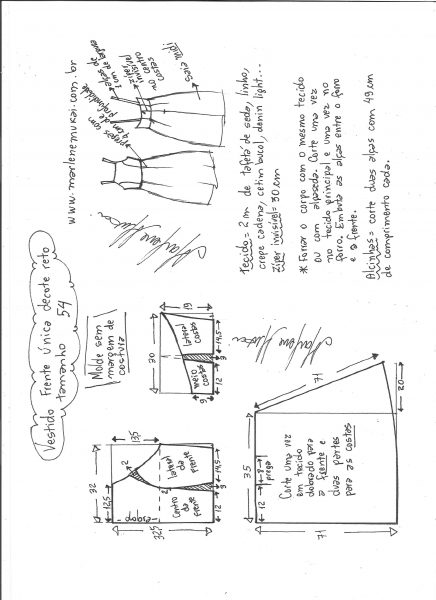 Vestido Frente única decote reto
tamanho 54
www.marlenemukai.com.br
Molde sem
margem de
costura
32
12,5
13,5
2
2
dobra
32,5
centro
da
frente
lateral
da
frente
12
3
14,5
30
19
9
meio
costas
lateral
costas
12
3
14,5
pregas com
4 cm de
profundidade
alças de
1 cm de largura
zíper
invisível
no centro
costas
Saia midi
Tecido = 2 m de tafetá de seda, linho,
crepe cadena, cetim bucol, denin light...
zíper invisível = 30 cm
* Forrar o corpo com o mesmo tecido
ou com alpaseda. Corte uma vez
no tecido principal e uma vez no
forro. Embuta as alças entre o forro
e a frente.
Alcinhas = corte duas alças com 49 cm
de comprimento cada.
35
12
8
prega
Corte uma vez
em tecido
dobrado para
a frente e
duas partes
para as costas
71
71
20